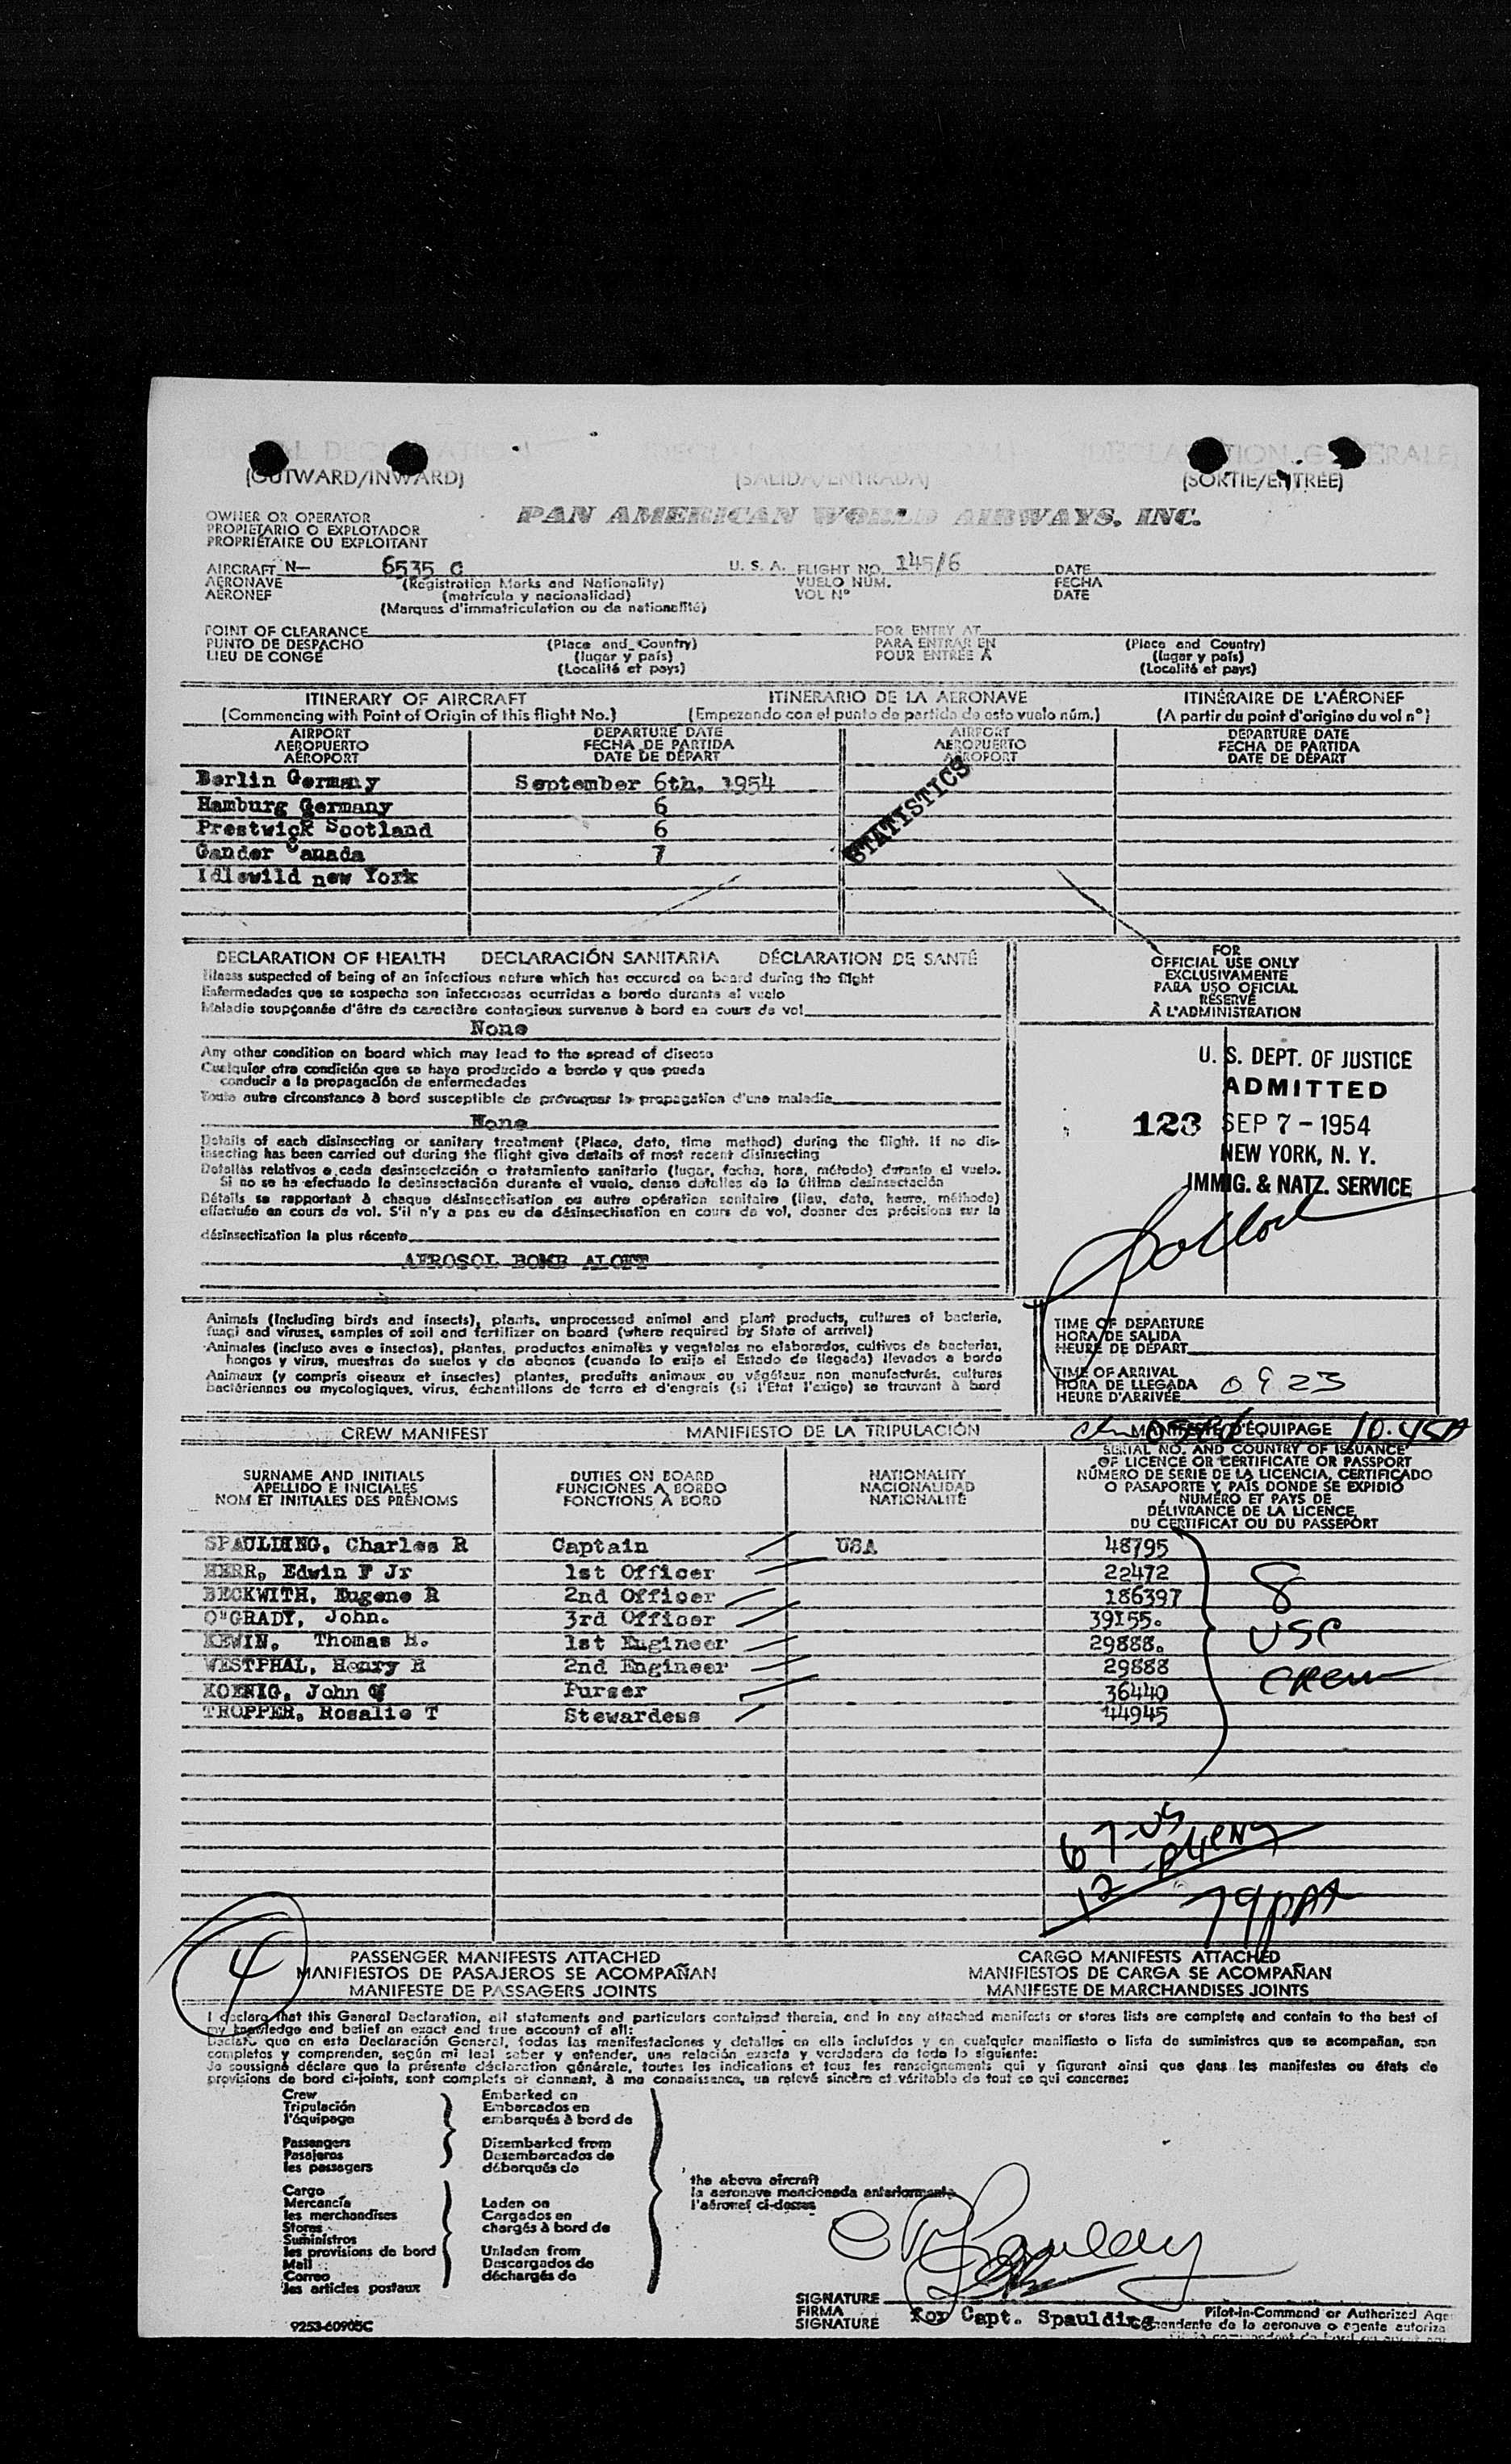 (OUTWARD/INWARD) (SALIDA/ENTRADA) (SORTIE/ENTRÉE)
OWNER OR OPERATOR
PROPIETARIO O EXPLOTADOR
PROPRIÉTAIRE OU EXPLOITANT
PAN AMERICAN WORLD AIRWAYS, INC.
AIRCRAFT N— 6535 C U. S. A. FLIGHT NO. 145/6 DATE
AERONAVE (Registration Marks and Nationality) VUELO NÚM. FECHA
AÉRONEF (matrícula y nacionalidad) VOL N° DATE
(Marques d'immatriculation ou de nationalité)
POINT OF CLEARANCE FOR ENTRY AT
PUNTO DE DESPACHO (Place and Country) PARA ENTRAR EN (Place and Country)
LIEU DE CONGÉ (lugar y país) POUR ENTRÉE A (lugar y país)
(Localité et pays) (Localité et pays)
ITINERARY OF AIRCRAFT ITINERARIO DE LA AERONAVE ITINÉRAIRE DE L'AÉRONEF
(Commencing with Point of Origin of this flight No.) (Empezando con el punto de partida de esto vuelo núm.) (A partir du point d'origine du vol n°)
AIRPORT DEPARTURE DATE AIRPORT DEPARTURE DATE
AEROPUERTO FECHA DE PARTIDA AEROPUERTO FECHA DE PARTIDA
AÉROPORT DATE DE DÉPART AÉROPORT DATE DE DÉPART
Berlin Germany September 6th. 1954
Hamburg Germany 6
Prestwick Scotland 6
Gander Canada 7
Idlewild new York
STATISTICS
DECLARATION OF HEALTH DECLARACIÓN SANITARIA DÉCLARATION DE SANTÉ
Illness suspected of being of an infectious nature which has occured on board during the flight
Enfermedades que se sospecha son infecciosas ocurridas a bordo durante el vuelo
Maladie soupçonnée d'être de caractère contagieux survenue à bord en cours de vol
None
Any other condition on board which may lead to the spread of disease
Cualquier otra condición que se haya producido a bordo y que pueda
conducir a la propagación de enfermedades
Toute autre circonstance à bord susceptible de provoquer la propagation d'une maladie
None
Details of each disinsecting or sanitary treatment (Place, date, time method) during the flight. If no dis-
insecting has been carried out during the flight give details of most recent disinsecting
Detalles relativos a cada desinsectación o tratamiento sanitario (lugar, fecha, hora, método) durante el vuelo.
Si no se ha efectuado la desinsectación durante el vuelo, dense detalles de la última desinsectación
Détails se rapportant à chaque désinsectisation ou autre opération sanitaire (lieu, date, heure, méthode)
effectuée en cours de vol. S'il n'y a pas eu de désinsectisation en cours de vol, donner des précisions sur la
désinsectisation la plus récente
AEROSOL BOMB ALOFT
FOR
OFFICIAL USE ONLY
EXCLUSIVAMENTE
PARA USO OFICIAL
RÉSERVÉ
À L'ADMINISTRATION
U. S. DEPT. OF JUSTICE
ADMITTED
123 SEP 7 - 1954
NEW YORK, N. Y.
IMMIG. & NATZ. SERVICE
Animals (Including birds and insects), plants, unprocessed animal and plant products, cultures of bacteria,
fungi and viruses, samples of soil and fertilizer on board (where required by State of arrival)
Animales (incluso aves e insectos), plantas, productos animales y vegetales no elaborados, cultivos de bacterias,
hongos y virus, muestras de suelos y de abonos (cuando lo exija el Estado de llegada) llevados a bordo
Animaux (y compris oiseaux et insectes) plantes, produits animaux ou végétaux non manufacturés, cultures
bactériennes ou mycologiques, virus, échantillons de terre et d'engrais (si l'Etat l'exige) se trouvant à bord
TIME OF DEPARTURE
HORA DE SALIDA
HEURE DE DÉPART
TIME OF ARRIVAL
HORA DE LLEGADA 0923
HEURE D'ARRIVÉE
CREW MANIFEST MANIFIESTO DE LA TRIPULACIÓN MANIFESTE D'ÉQUIPAGE 10.45A
SURNAME AND INITIALS DUTIES ON BOARD NATIONALITY SERIAL NO. AND COUNTRY OF ISSUANCE
APELLIDO E INICIALES FUNCIONES A BORDO NACIONALIDAD OF LICENCE OR CERTIFICATE OR PASSPORT
NOM ET INITIALES DES PRÉNOMS FONCTIONS À BORD NATIONALITÉ NÚMERO DE SERIE DE LA LICENCIA, CERTIFICADO
O PASAPORTE Y PAÍS DONDE SE EXPIDIÓ
NUMÉRO ET PAYS DE
DÉLIVRANCE DE LA LICENCE,
DU CERTIFICAT OU DU PASSEPORT
SPAULDING, Charles R Captain USA 48795
HERR, Edwin F Jr 1st Officer 22472
BECKWITH, Eugene R 2nd Officer 186397
O"GRADY, John. 3rd Officer 39155.
KEWIN, Thomas H. 1st Engineer 29888.
WESTPHAL, Henry H 2nd Engineer 29888
KOENIG, John Purser 36440
TROPPER, Rosalie T Stewardess 44945
8
USC
CREW
67-US
12
79 PAX
4
PASSENGER MANIFESTS ATTACHED CARGO MANIFESTS ATTACHED
MANIFIESTOS DE PASAJEROS SE ACOMPAÑAN MANIFIESTOS DE CARGA SE ACOMPAÑAN
MANIFESTE DE PASSAGERS JOINTS MANIFESTE DE MARCHANDISES JOINTS
I declare that this General Declaration, all statements and particulars contained therein, and in any attached manifests or stores lists are complete and contain to the best of
my knowledge and belief an exact and true account of all:
Declaro que en esta Declaración General, todas las manifestaciones y detalles en ella incluídos y en cualquier manifiesto o lista de suministros que se acompañan, son
completos y comprenden, según mi leal saber y entender, una relación exacta y verdadera de todo lo siguiente:
Je soussigné déclare que la présente déclaration générale, toutes les indications et tous les renseignements qui y figurent ainsi que dans les manifestes ou états de
provisions de bord ci-joints, sont complets et donnent, à ma connaissance, un relevé sincère et véritable de tout ce qui concerne:
Crew Embarked on
Tripulación Embarcados en
l'équipage embarqués à bord de
Passengers Disembarked from
Pasajeros Desembarcados de
les passagers débarqués de
the above aircraft
la aeronave mencionada anteriormente
l'aéronef ci-dessus
Cargo
Mercancía Laden on
les merchandises Cargados en
Stores chargés à bord de
Suministros
les provisions de bord Unladen from
Mail Descargados de
Correo déchargés de
les articles postaux
SIGNATURE
FIRMA
SIGNATURE
for Capt. Spaulding
Pilot-in-Command or Authorized Age
mandante de la aeronave o agente autoriza
9253-60905C